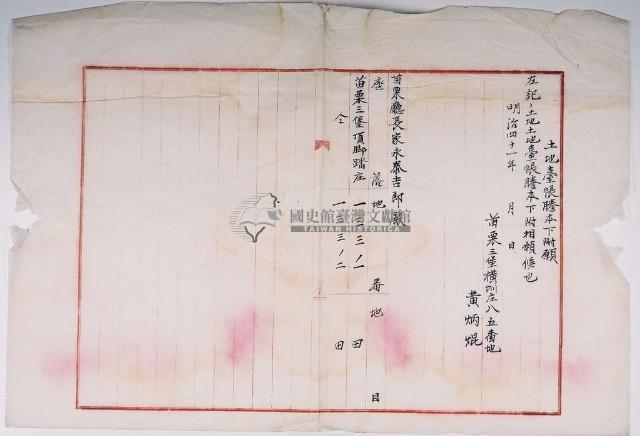 土地臺帳謄本下附願
左記ノ土地土地臺帳謄本下附相願候也
明治四十一年 月 日
苗栗三堡橫圳庄八五番地
黃炳焜
苗栗廳長家永泰吉郎殿
庄 落 地 番 地 目
苗栗三堡頂脚踏庄 一三三ノ一 田
仝 一三三ノ二 田
國史館臺灣文獻館
TAIWAN HISTORICA